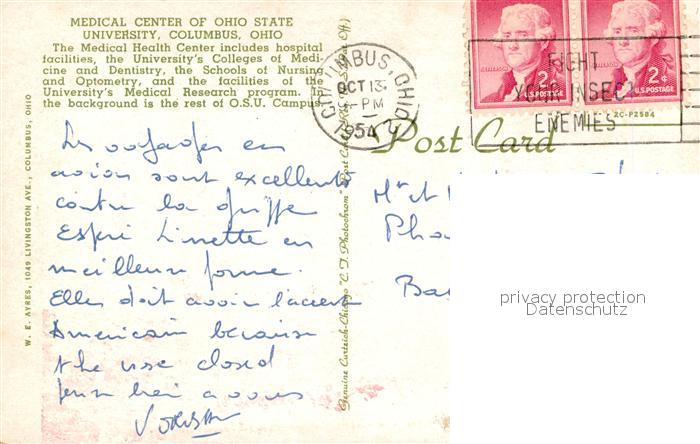 MEDICAL CENTER OF OHIO STATE
UNIVERSITY, COLUMBUS, OHIO
The Medical Health Center includes hospital
facilities, the University's Colleges of Medi-
cine and Dentistry, the Schools of Nursing
and Optometry, and the facilities of the
University's Medical Research program. In
the background is the rest of O.S.U. Campus.
W. E. AYRES, 1049 LIVINGSTON AVE., COLUMBUS, OHIO
en
avion sont excellents
contre la grippe
Espri Linette en
meilleure forme.
Elle doit avoir l'accent
Americain because
the nose closed
a vous
COLUMBUS, OHIO
OCT 13
-PM
1954
JEFFERSON
2¢
U.S. POSTAGE
JEFFERSON
2¢
U.S. POSTAGE
FIGHT
YOUR INSECT
ENEMIES
2C-P2584
Post Card
Genuine Curteich-Chicago "C.T. Photochrom" Post Card
Mr et
Pho
Ba
privacy protection
Datenschutz